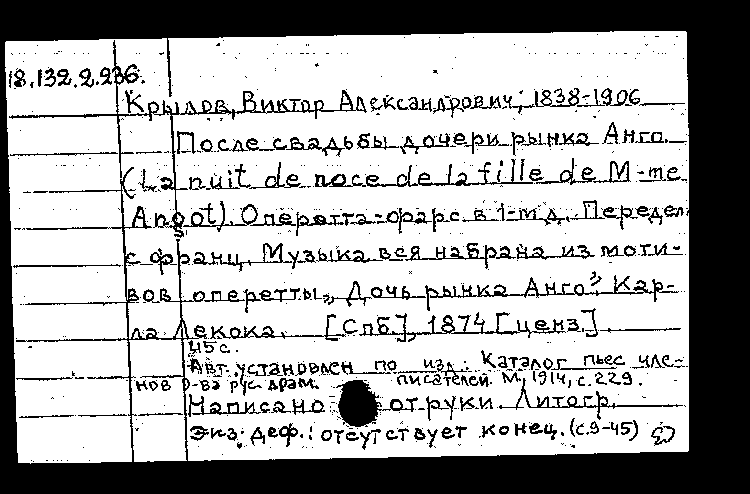 18.132.2.236.
Крылов, Виктор Александрович, 1838-1906
После свадьбы дочери рынка Анго.
(La nuit de noce de la fille de M-me
Angot). Оперетта-фарс в 1-м д. Передел.
с франц. Музыка вся набрана из моти-
вов оперетты „Дочь рынка Анго", Кар-
ла Лекока. [Спб], 1874 [ценз.].
45 с.
Авт. установлен по изд.: Каталог пьес чле-
нов О-ва рус. драм. писателей. М., 1914, с. 229.
Написано от руки. Литогр.
Экз. деф.: отсутствует конец. (с. 9-45)